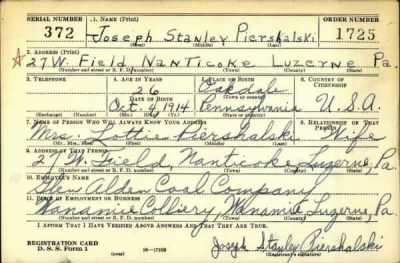 SERIAL NUMBER 1. NAME (Print) ORDER NUMBER
372 Joseph Stanley Piershalski 1725
(First) (Middle) (Last)
2. ADDRESS (Print)
27 W. Field Nanticoke Luzerne Pa.
(Number and street or R. F. D. number) (Town) (County) (State)
3. TELEPHONE 4. AGE IN YEARS 5. PLACE OF BIRTH 6. COUNTRY OF CITIZENSHIP
26 Oakdale
DATE OF BIRTH (Town or county)
Oct. 4, 1914 Pennsylvania U.S.A.
(Exchange) (Number) (Mo.) (Day) (Yr.) (State or country)
7. NAME OF PERSON WHO WILL ALWAYS KNOW YOUR ADDRESS 8. RELATIONSHIP OF THAT PERSON
Mrs. Lottie Piershalski Wife
(Mr., Mrs., Miss) (First) (Middle) (Last)
9. ADDRESS OF THAT PERSON
27 W. Field, Nanticoke Luzerne, Pa.
(Number and street or R. F. D. number) (Town) (County) (State)
10. EMPLOYER'S NAME
Glen Alden Coal Company
11. PLACE OF EMPLOYMENT OR BUSINESS
Wanamie Colliery, Wanamie Luzerne, Pa.
(Number and street or R. F. D. number) (Town) (County) (State)
I AFFIRM THAT I HAVE VERIFIED ABOVE ANSWERS AND THAT THEY ARE TRUE.
REGISTRATION CARD
D. S. S. Form 1 16—17105 Joseph Stanley Piershalski